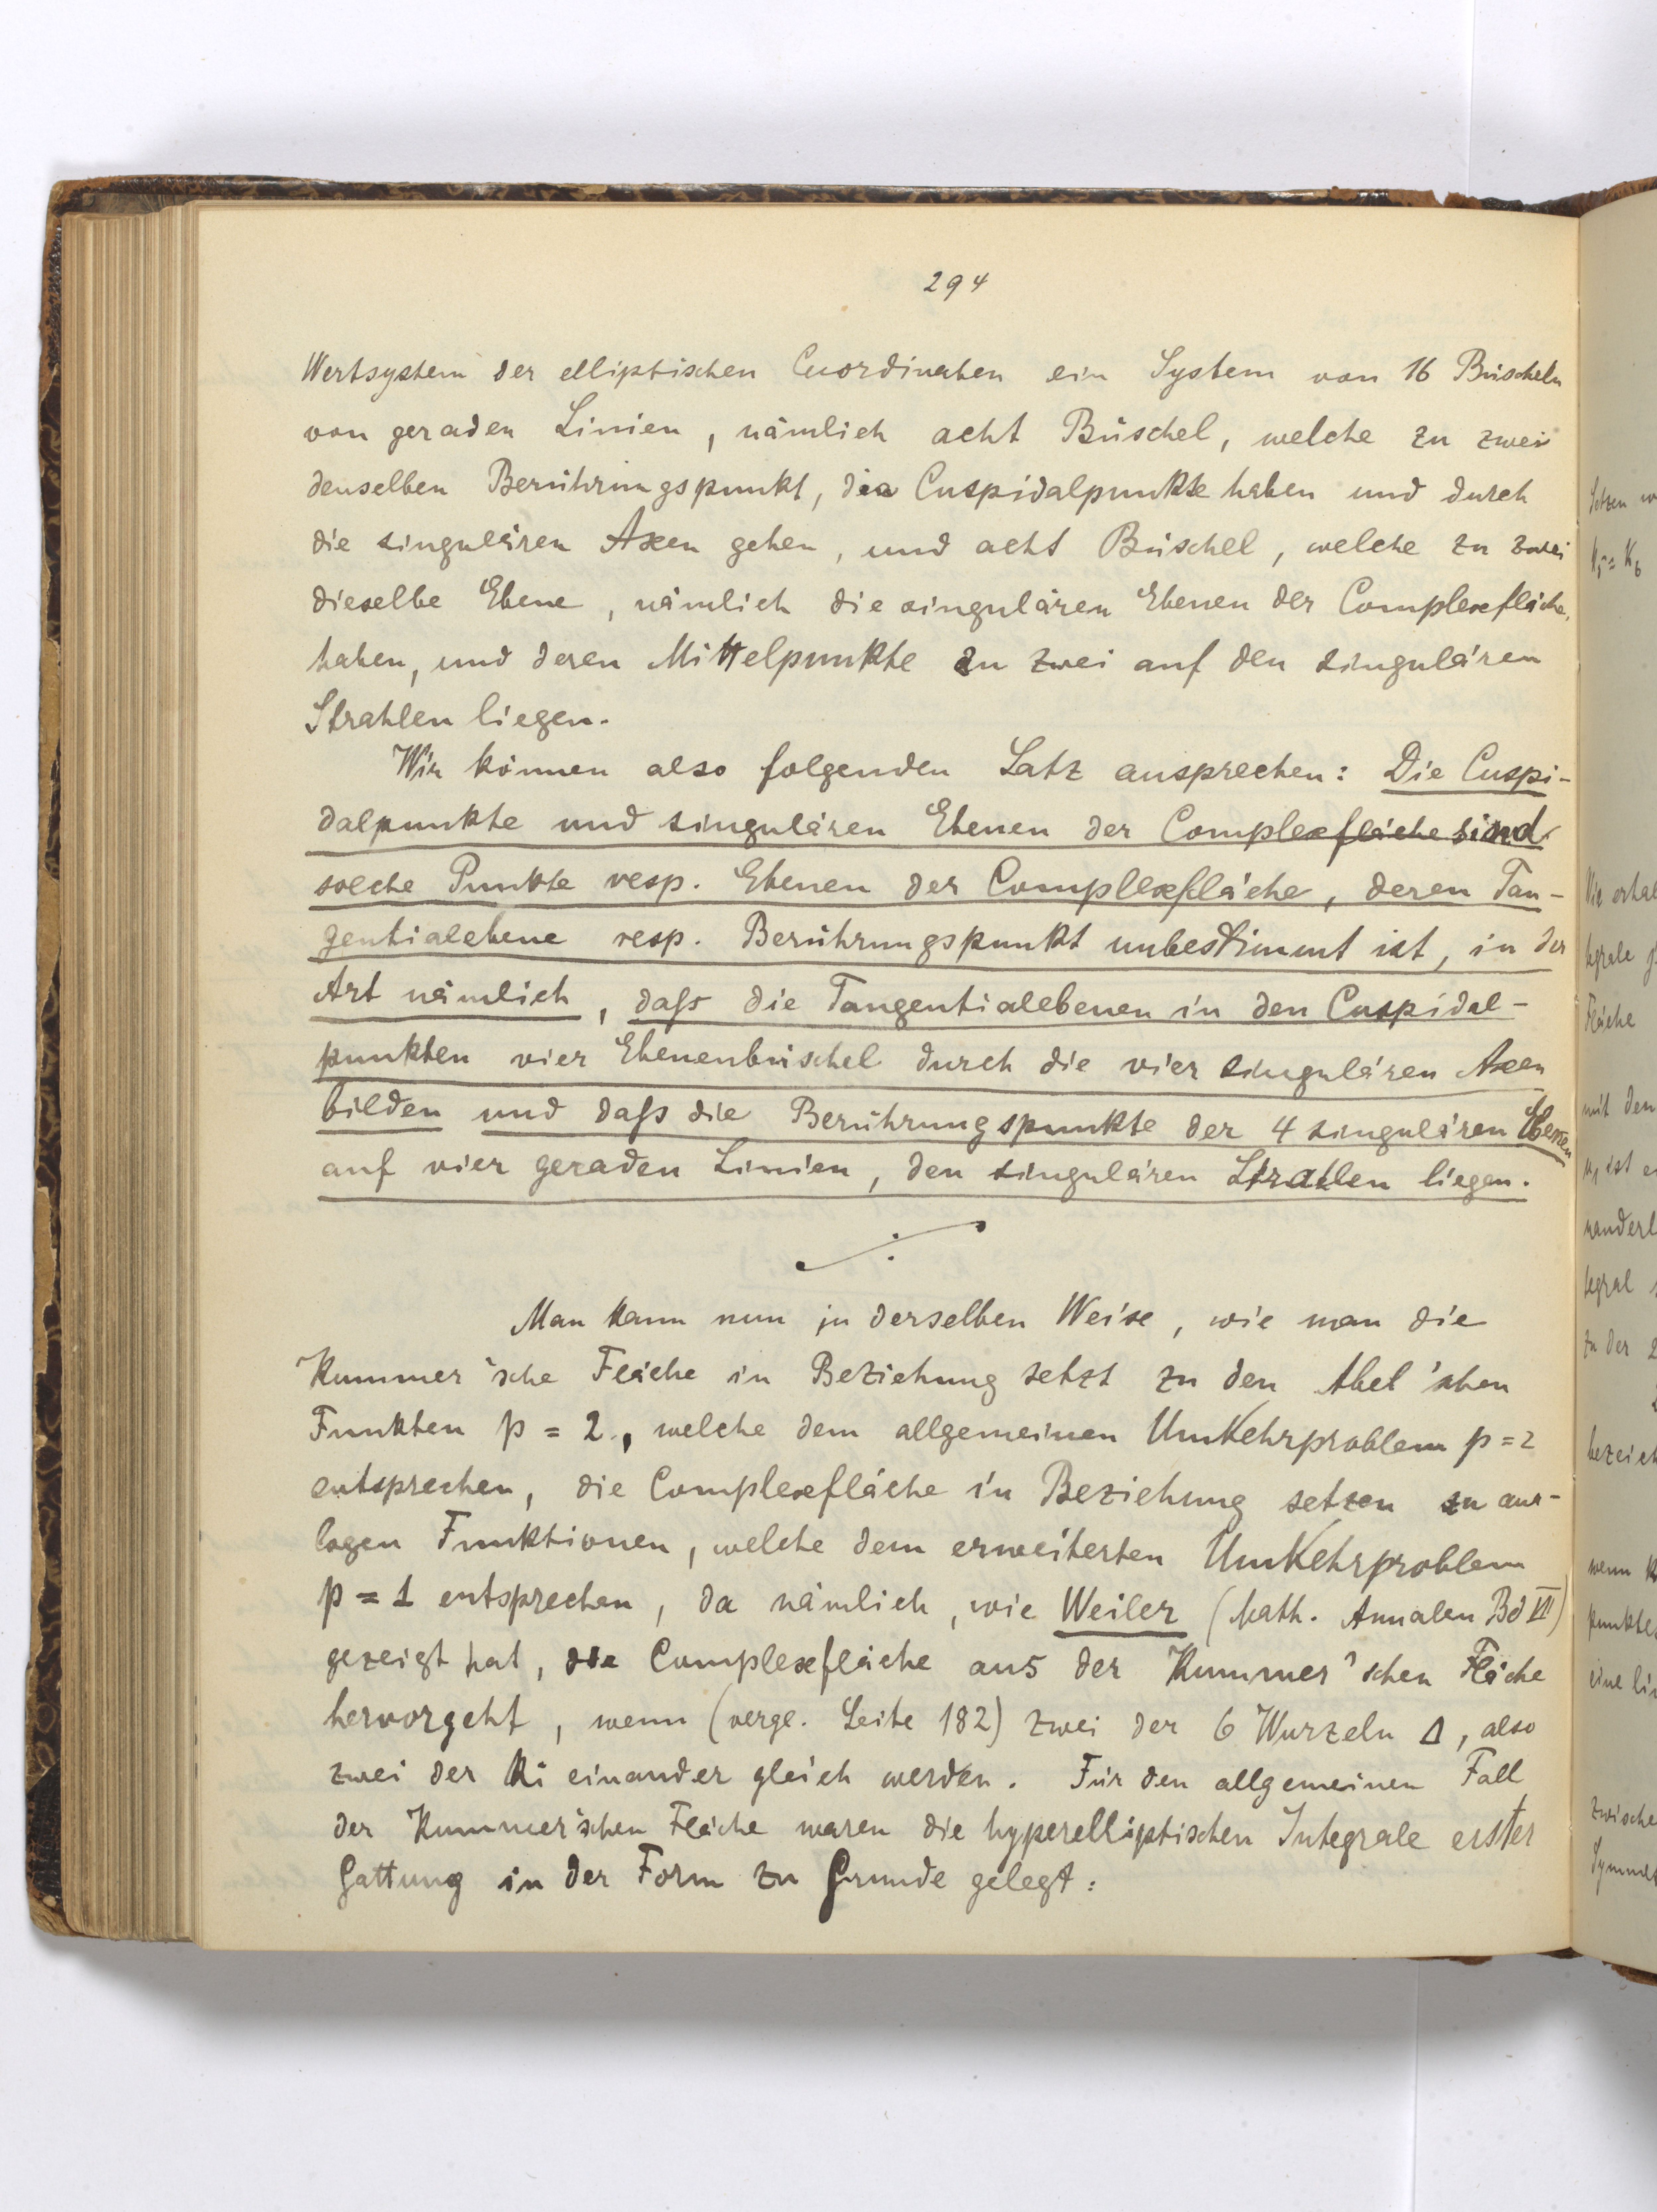 294
Wertsystem der elliptischen Cuordinaten ein System von 16 Büscheln
von geraden Linien, nämlich acht Büschel, welche zu zwei
denselben Berührungspunkt, die Cuspidalpunkte haben und durch
die singulären Axen gehen, und acht Büschel, welche zu zwei
dieselbe Ebene, nämlich die singulären Ebenen der Complexfläche,
haben, und deren Mittelpunkte zu zwei auf den singulären
Strahlen liegen.
Wir können also folgenden Satz aussprechen: Die Cuspi-
dalpunkte und singulären Ebenen der Complexfläche sind
solche Punkte resp. Ebenen der Complexfläche, deren Tan-
gentialebene resp. Berührungspunkt unbestimmt ist, in der
Art nämlich, daſs die Tangentialebenen in den Cuspidal-
punkten vier Ebenenbüschel durch die vier singulären Axen
bilden und daſs die Berührungspunkte der 4 singulären Ebenen
auf vier geraden Linien, den singulären Strahlen liegen.
Man kann nun in derselben Weise, wie man die
Kummer'sche Fläche in Beziehung setzt zu den Abel'schen
Funkten p = 2, welche dem allgemeinen Umkehrproblem p = 2
entsprechen, die Complexfläche in Beziehung setzen zu ana-
logen Funktionen, welche dem erweiterten Umkehrproblem
p = 1 entsprechen, da nämlich, wie Weiler (Math. Annalen Bd VII)
gezeigt hat, die Complexfläche aus der Kummer'schen Fläche
hervorgeht, wenn (vergl. Seite 182) zwei der 6 Wurzeln Δ, also
zwei der Ki einander gleich werden. Für den allgemeinen Fall
der Kummer'schen Fläche waren die hyperelliptischen Integrale erster
Gattung in der Form zu Grunde gelegt:
Setzen
K5 = K6
Fläche
mit den
zu der
wenn
zwische